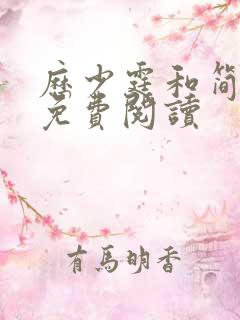 厤少霆和简
免費閱讀
有馬明香